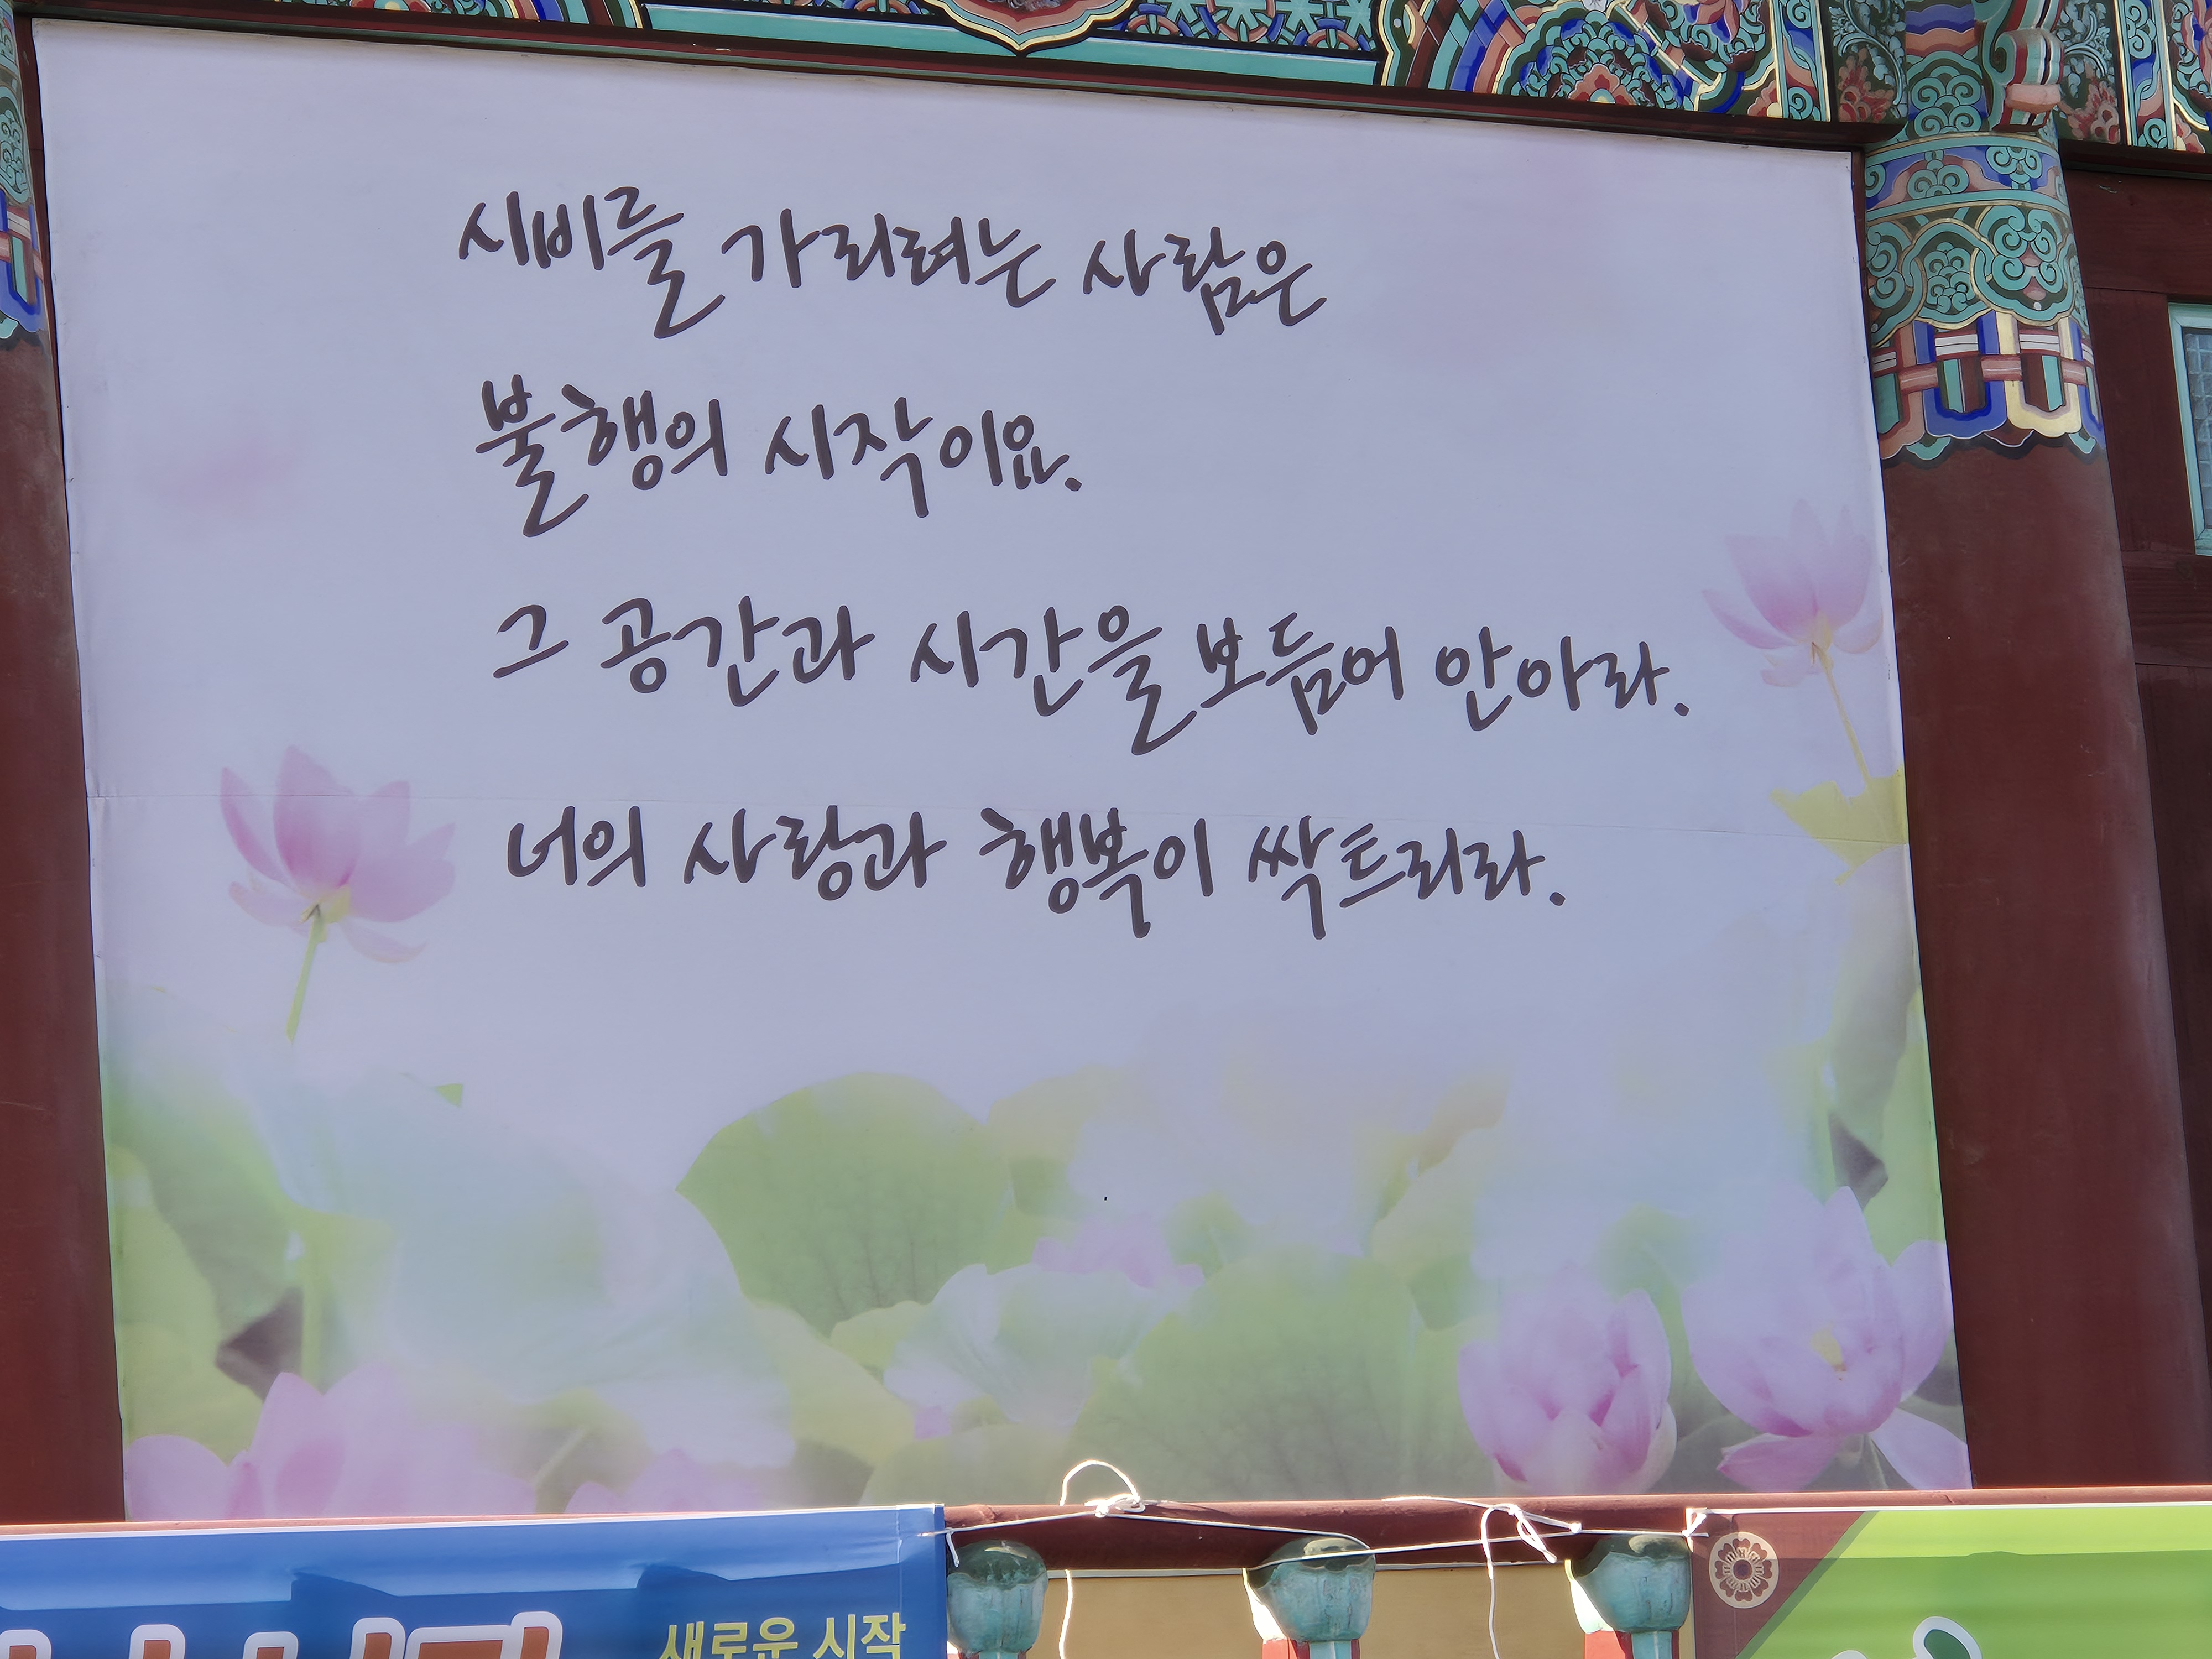 시비를 가리려는 사람은
불행의 시작이요.
그 공간과 시간을 보듬어 안아라.
너의 사랑과 행복이 싹트리라.
새로운 시작